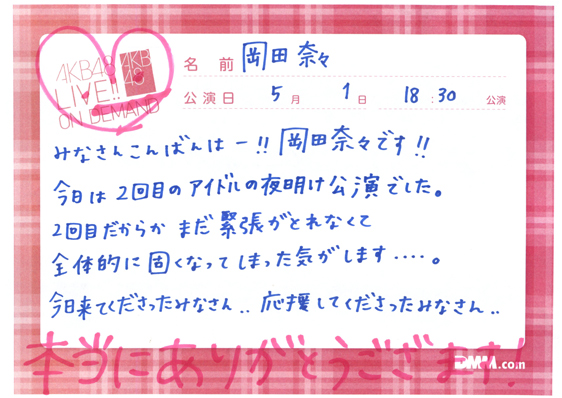 AKB48
LIVE!!
ON DEMAND
AKB
48
名前 岡田奈々
公演日 5月 1日 18:30 公演
みなさんこんばんはー!! 岡田奈々です!!
今日は2回目のアイドルの夜明け公演でした。
2回目だからか まだ緊張がとれなくて
全体的に固くなってしまった気がします‥‥。
今日来てくださったみなさん‥応援してくださったみなさん‥
本当にありがとうございます!
DMM.com